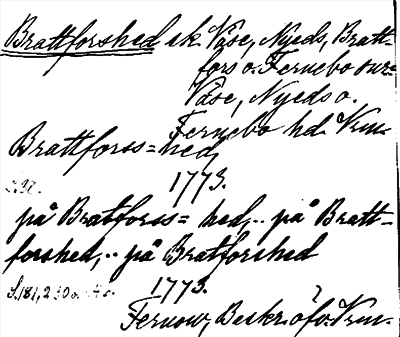 Brattforshed sk. Väse, Nyeds, Bratt-
fors o. Fernebo snr
Väse, Nyeds o.
Fernebo hd. Vrm.
Brattforss=hed,
1773.
på Bratforss= hed,.. på Bratt-
forshed,.. på Bratforshed
S. 181, 230 o.
1773.
Fernow, Beskr. öfv. Vrm.